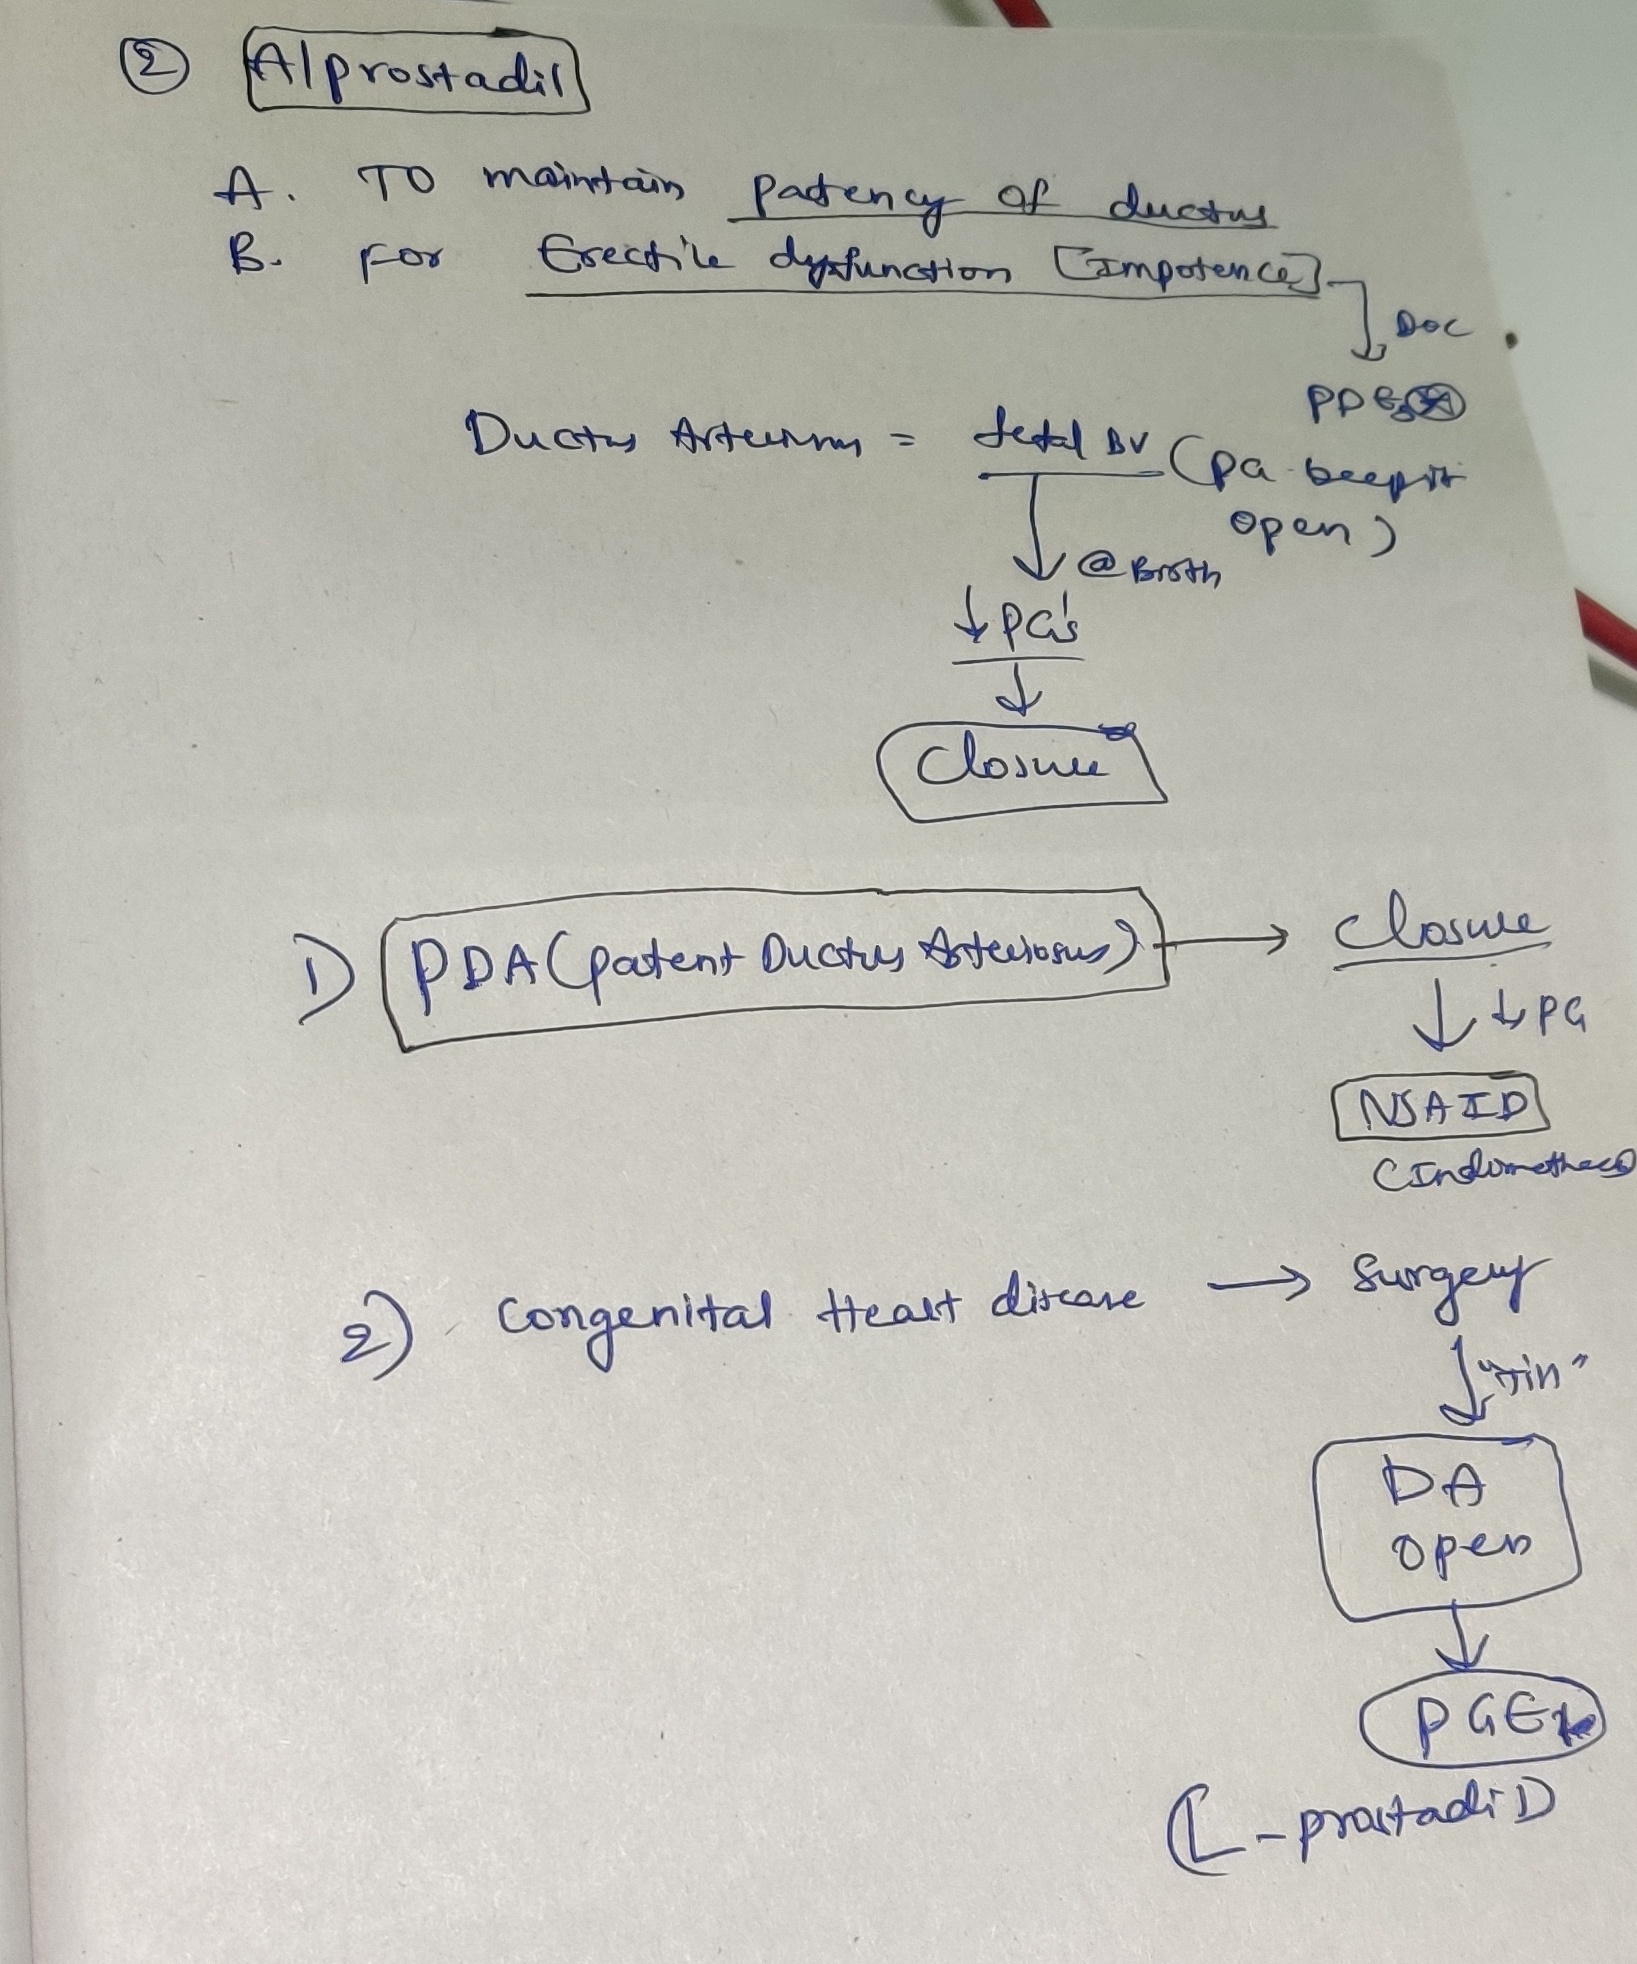 ② Alprostadil
A. TO maintain patency of ductus
B. For Erectile dysfunction [Impotence]
DOC
PDE5
Ductus Arteriosus = fetal BV (PG keeps it
open)
@ Birth
↓ PG's
↓
Closure
1) PDA (patent Ductus Arteriosus) → closure
↓ ↓ PG
NSAID
(Indomethacin
2) Congenital Heart disease → Surgery
↓ "Tin"
DA
open
↓
PGE1
(L-prostadil)